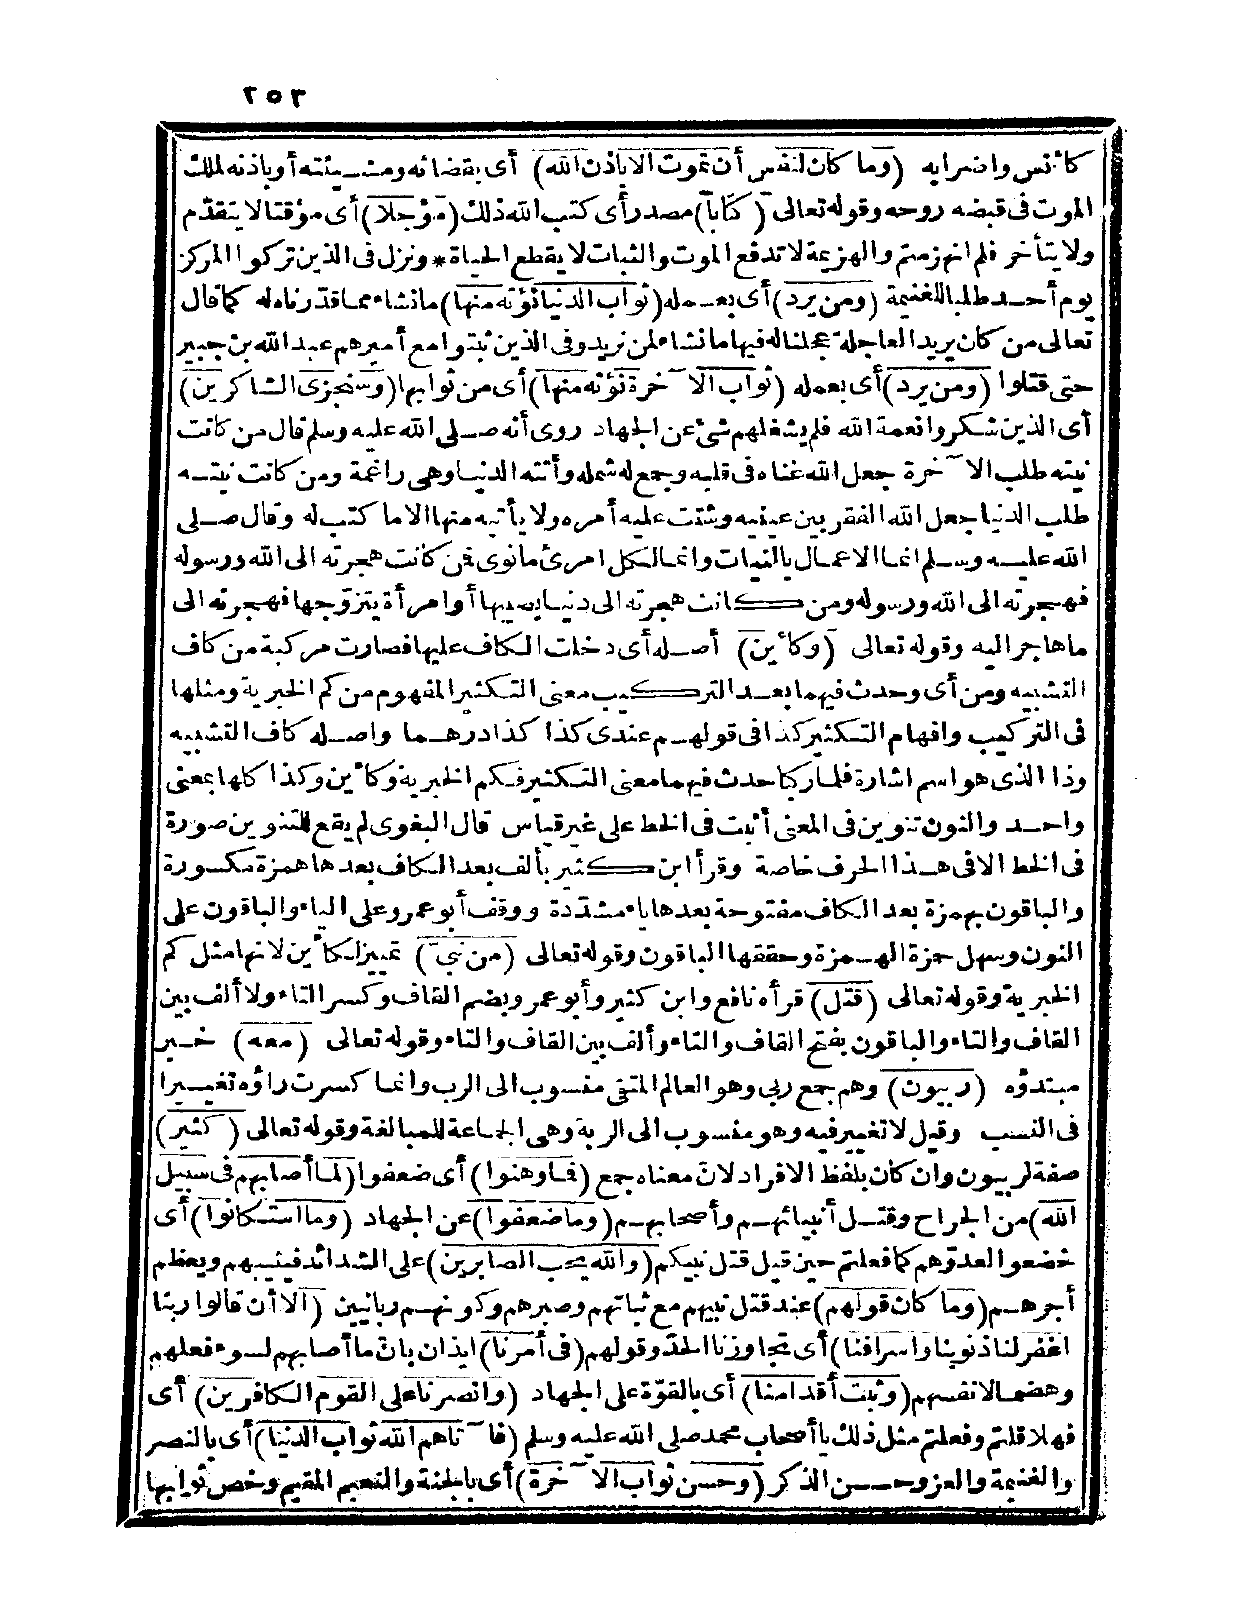 ٢٥٣
كأنس واضرابه (وما كان لنفس أن تموت الا باذن الله) أى بقضائه ومشيئته أو باذنه لملك
الموت فى قبضه روحه وقوله تعالى (كتابا) مصدر أى كتب الله ذلك (مؤجلا) أى مؤقتا لا يتقدّم
ولا يتأخر فلم انهزمتم والهزيمة لا تدفع الموت والثبات لا يقطع الحياة * ونزل فى الذين تركوا المركز
يوم أحد طلبا للغنيمة (ومن يرد) أى بعمله (ثواب الدنيا نؤته منها) ما نشاء مما قدّرناه له كما قال
تعالى من كان يريد العاجلة عجلنا له فيها ما نشاء لمن نريد وفى الذين ثبتوا مع أميرهم عبد الله بن جبير
حتى قتلوا (ومن يرد) أى بعمله (ثواب الآخرة نؤته منها) أى من ثوابها (وسنجزى الشاكرين)
أى الذين شكروا نعمة الله فلم يشغلهم شئ عن الجهاد روى أنه صلى الله عليه وسلم قال من كانت
نيته طلب الآخرة جعل الله غناه فى قلبه وجمع له شمله وأتته الدنيا وهى راغمة ومن كانت نيته
طلب الدنيا جعل الله الفقر بين عينيه وشتت عليه أمره ولا يأتيه منها الا ما كتب له وقال صلى
الله عليه وسلم انما الاعمال بالنيات وانما لكل امرئ ما نوى فمن كانت هجرته الى الله ورسوله
فهجرته الى الله ورسوله ومن كانت هجرته الى دنيا يصيبها أو امرأة يتزوّجها فهجرته الى
ما هاجر اليه وقوله تعالى (وكأين) أصله أى دخلت الكاف عليها فصارت مركبة من كاف
التشبيه ومن أى وحدث فيهما بعد التركيب معنى التكثير المفهوم من كم الخبرية ومثلها
فى التركيب وافهام التكثير كذا فى قولهم عندى كذا كذا درهما واصله كاف التشبيه
وذا الذى هو اسم اشارة فلما ركبا حدث فيهما معنى التكثير فكم الخبرية وكأين وكذا كلها بمعنى
واحد والنون تنوين فى المعنى أثبت فى الخط على غير قياس قال البغوى لم يقع للتنوين صورة
فى الخط الا فى هذا الحرف خاصة وقرأ ابن كثير بألف بعد الكاف بعدها همزة مكسورة
والباقون بهمزة بعد الكاف مفتوحة بعدها ياء مشدّدة ووقف أبو عمرو على الياء والباقون على
النون وسهل حمزة الهمزة وحققها الباقون وقوله تعالى (من نبىّ) تمييز لكأين لانها مثل كم
الخبرية وقوله تعالى (قتل) قرأه نافع وابن كثير وأبو عمرو بضم القاف وكسر التاء ولا ألف بين
القاف والتاء والباقون بفتح القاف والتاء وألف بين القاف والتاء وقوله تعالى (معه) خبر
مبتدؤه (ربيون) وهم جمع ربى وهو العالم المتقى منسوب الى الرب وانما كسرت راؤه تغييرا
فى النسب وقيل لا تغيير فيه وهو منسوب الى الربة وهى الجماعة للمبالغة وقوله تعالى (كثير)
صفة لربيون وان كان بلفظ الافراد لانّ معناه جمع (فما وهنوا) أى ضعفوا (لما أصابهم فى سبيل
الله) من الجراح وقتل أنبيائهم وأصحابهم (وما ضعفوا) عن الجهاد (وما استكانوا) أى
خضعوا لعدوّهم كما فعلتم حين قيل قتل نبيكم (والله يحب الصابرين) على الشدائد فيثيبهم ويعظم
أجرهم (وما كان قولهم) عند قتل نبيهم مع ثباتهم وصبرهم وكونهم ربانيين (الا أن قالوا ربنا
اغفر لنا ذنوبنا واسرافنا) أى تجاوزنا الحدّ وقولهم (فى أمرنا) ايذان بانّ ما أصابهم لسوء فعلهم
وهضما لانفسهم (وثبت أقدامنا) أى بالقوّة على الجهاد (وانصرنا على القوم الكافرين) أى
فهلا قلتم وفعلتم مثل ذلك يا أصحاب محمد صلى الله عليه وسلم (فآتاهم الله ثواب الدنيا) أى بالنصر
والغنيمة والعز وحسن الذكر (وحسن ثواب الآخرة) أى بالجنة والنعيم المقيم وخص ثوابها